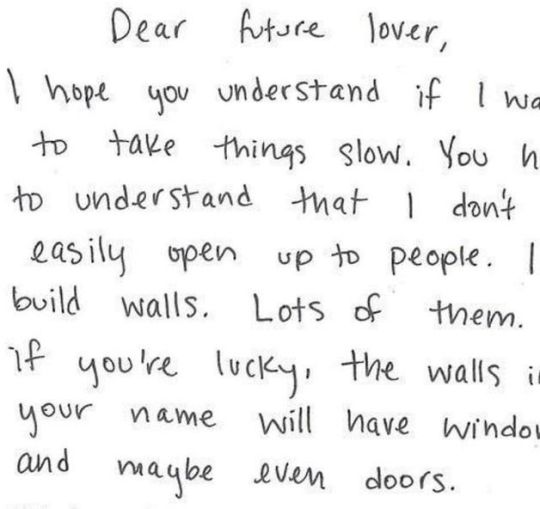 Dear future lover,
I hope you understand if I wa
to take things slow. You h
to understand that I don't
easily open up to people. I
build walls. Lots of them.
if you're lucky, the walls i
your name will have windo
and maybe even doors.